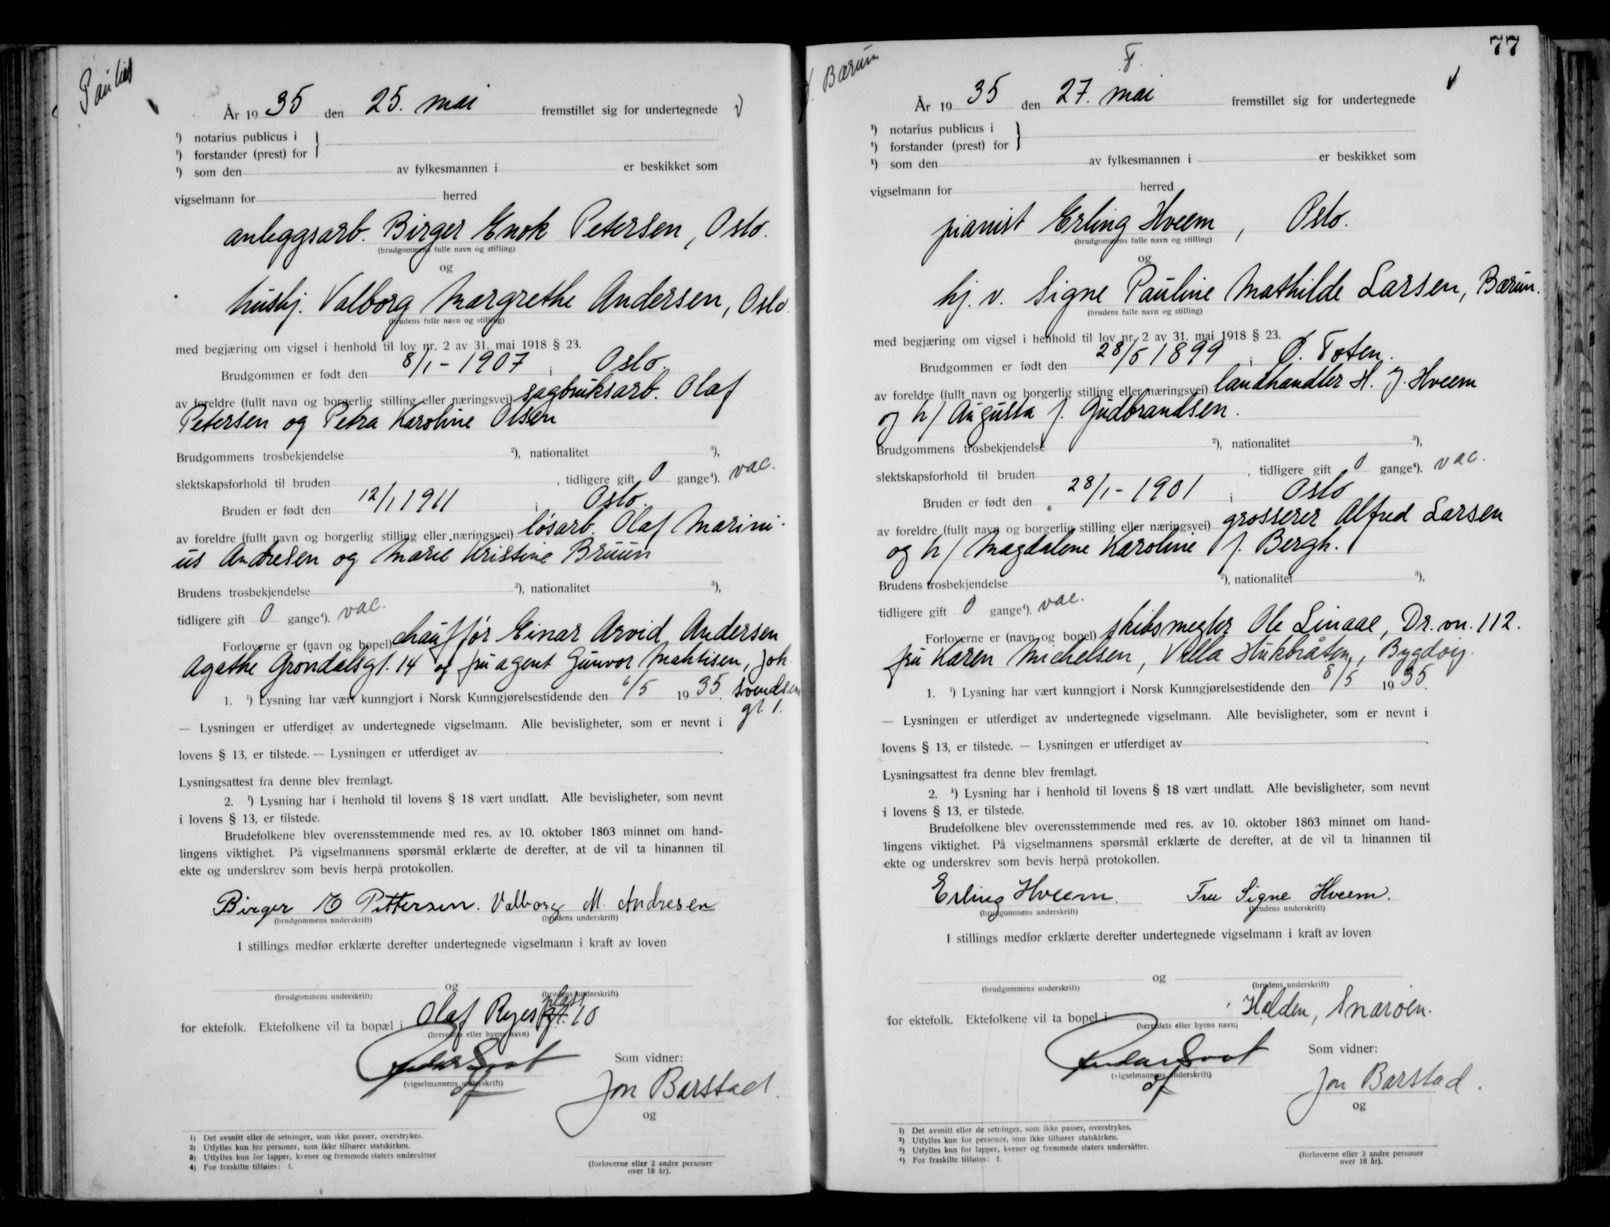 Paulus
År 1935 den 25. mai fremstillet sig for undertegnede
¹) notarius publicus i
¹) forstander (prest) for
¹) som den av fylkesmannen i er beskikket som
vigselmann for herred
anleggsarb. Birger Enok Petersen, Oslo.
(brudgommens fulle navn og stilling)
og
hushj. Valborg Margrethe Andersen, Oslo.
(brudens fulle navn og stilling)
med begjæring om vigsel i henhold til lov nr. 2 av 31. mai 1918 § 23.
Brudgommen er født den 8/1-1907, i Oslo
av foreldre (fullt navn og borgerlig stilling eller næringsvei) sagbruksarb. Olaf
Petersen og Petra Karoline Olsen
Brudgommens trosbekjendelse ²), nationalitet ³),
slektskapsforhold til bruden , tidligere gift 0 gange⁴). vac.
Bruden er født den 12/1 1911, i Oslo.
av foreldre (fullt navn og borgerlig stilling eller næringsvei) løsarb. Olaf Marini-
us Andresen og Marie Kristine Bruun
Brudens trosbekjendelse ²), nationalitet ³),
tidligere gift 0 gange⁴). vac.
Forloverne er (navn og bopel) chauffør Einar Arvid Andersen
Agathe Grøndalsgt. 14 og fru agent Gunvor Mahtisen, Joh.
Svendsens
gt. 1.
1. ¹) Lysning har vært kunngjort i Norsk Kunngjørelsestidende den 6/5 1935.
— Lysningen er utferdiget av undertegnede vigselmann. Alle bevisligheter, som er nevnt i
lovens § 13, er tilstede. — Lysningen er utferdiget av .
Lysningsattest fra denne blev fremlagt.
2. ¹) Lysning har i henhold til lovens § 18 vært undlatt. Alle bevisligheter, som nevnt
i lovens § 13, er tilstede.
Brudefolkene blev overensstemmende med res. av 10. oktober 1863 minnet om hand-
lingens viktighet. På vigselmannens spørsmål erklærte de derefter, at de vil ta hinannen til
ekte og underskrev som bevis herpå protokollen.
Birger E Pettersen. Valborg M. Andresen
(brudgommens underskrift) (brudens underskrift)
I stillings medfør erklærte derefter undertegnede vigselmann i kraft av loven
og
(brudgommens underskrift) (brudens underskrift)
for ektefolk. Ektefolkene vil ta bopæl i Olaf Ryes plass 10
(herredets eller byens navn)
Som vidner:
(vigselmannens underskrift)
Jon Barstad.
og
1) Det avsnitt eller de setninger, som ikke passer, overstrykes.
2) Utfylles kun for personer, som ikke tilhører statskirken.
3) Utfylles kun for lapper, kvener og fremmede staters undersåtter
4) For fraskilte tilføies: f.
(forloverne eller 2 andre personer
over 18 år).
77
Bærum
År 1935 den 27. mai fremstillet sig for undertegnede
¹) notarius publicus i
¹) forstander (prest) for
¹) som den av fylkesmannen i er beskikket som
vigselmann for herred
pianist Erling Hveem, Oslo.
(brudgommens fulle navn og stilling)
og
hj. v. Signe Pauline Mathilde Larsen, Bærum.
(brudens fulle navn og stilling)
med begjæring om vigsel i henhold til lov nr. 2 av 31. mai 1918 § 23.
Brudgommen er født den 28/5 1899, i Ø. Toten.
av foreldre (fullt navn og borgerlig stilling eller næringsvei) landhandler H. J. Hveem
og h/ Augusta f. Gudbrandsen.
Brudgommens trosbekjendelse ²), nationalitet ³),
slektskapsforhold til bruden , tidligere gift 0 gange⁴). vac.
Bruden er født den 28/1-1901, i Oslo
av foreldre (fullt navn og borgerlig stilling eller næringsvei) grosserer Alfred Larsen
og h/ Magdalene Karoline f. Bergh.
Brudens trosbekjendelse ²), nationalitet ³),
tidligere gift 0 gange⁴). vac.
Forloverne er (navn og bopel) skibsmegler Ole Linaae, Dr. vn. 112.
fru Karen Michelsen, Villa Hukbråten, Bygdøy.
1. ¹) Lysning har vært kunngjort i Norsk Kunngjørelsestidende den 8/5 1935.
— Lysningen er utferdiget av undertegnede vigselmann. Alle bevisligheter, som er nevnt i
lovens § 13, er tilstede. — Lysningen er utferdiget av .
Lysningsattest fra denne blev fremlagt.
2. ¹) Lysning har i henhold til lovens § 18 vært undlatt. Alle bevisligheter, som nevnt
i lovens § 13, er tilstede.
Brudefolkene blev overensstemmende med res. av 10. oktober 1863 minnet om hand-
lingens viktighet. På vigselmannens spørsmål erklærte de derefter, at de vil ta hinannen til
ekte og underskrev som bevis herpå protokollen.
Erling Hveem. Fru Signe Hveem.
(brudgommens underskrift) (brudens underskrift)
I stillings medfør erklærte derefter undertegnede vigselmann i kraft av loven
og
(brudgommens underskrift) (brudens underskrift)
for ektefolk. Ektefolkene vil ta bopel i Halden, Snarøen.
(herredets eller byens navn)
Som vidner:
(vigselmannens underskrift)
Jon Barstad.
og
¹) Det avsnitt eller de setninger, som ikke passer, overstrykes.
²) Utfylles kun for personer, som ikke tilhører statskirken.
³) Utfylles kun for lapper, kvener og fremmede staters undersåtter.
⁴) For fraskilte tilføies: f.
(forloverne eller 2 andre personer
over 18 år).